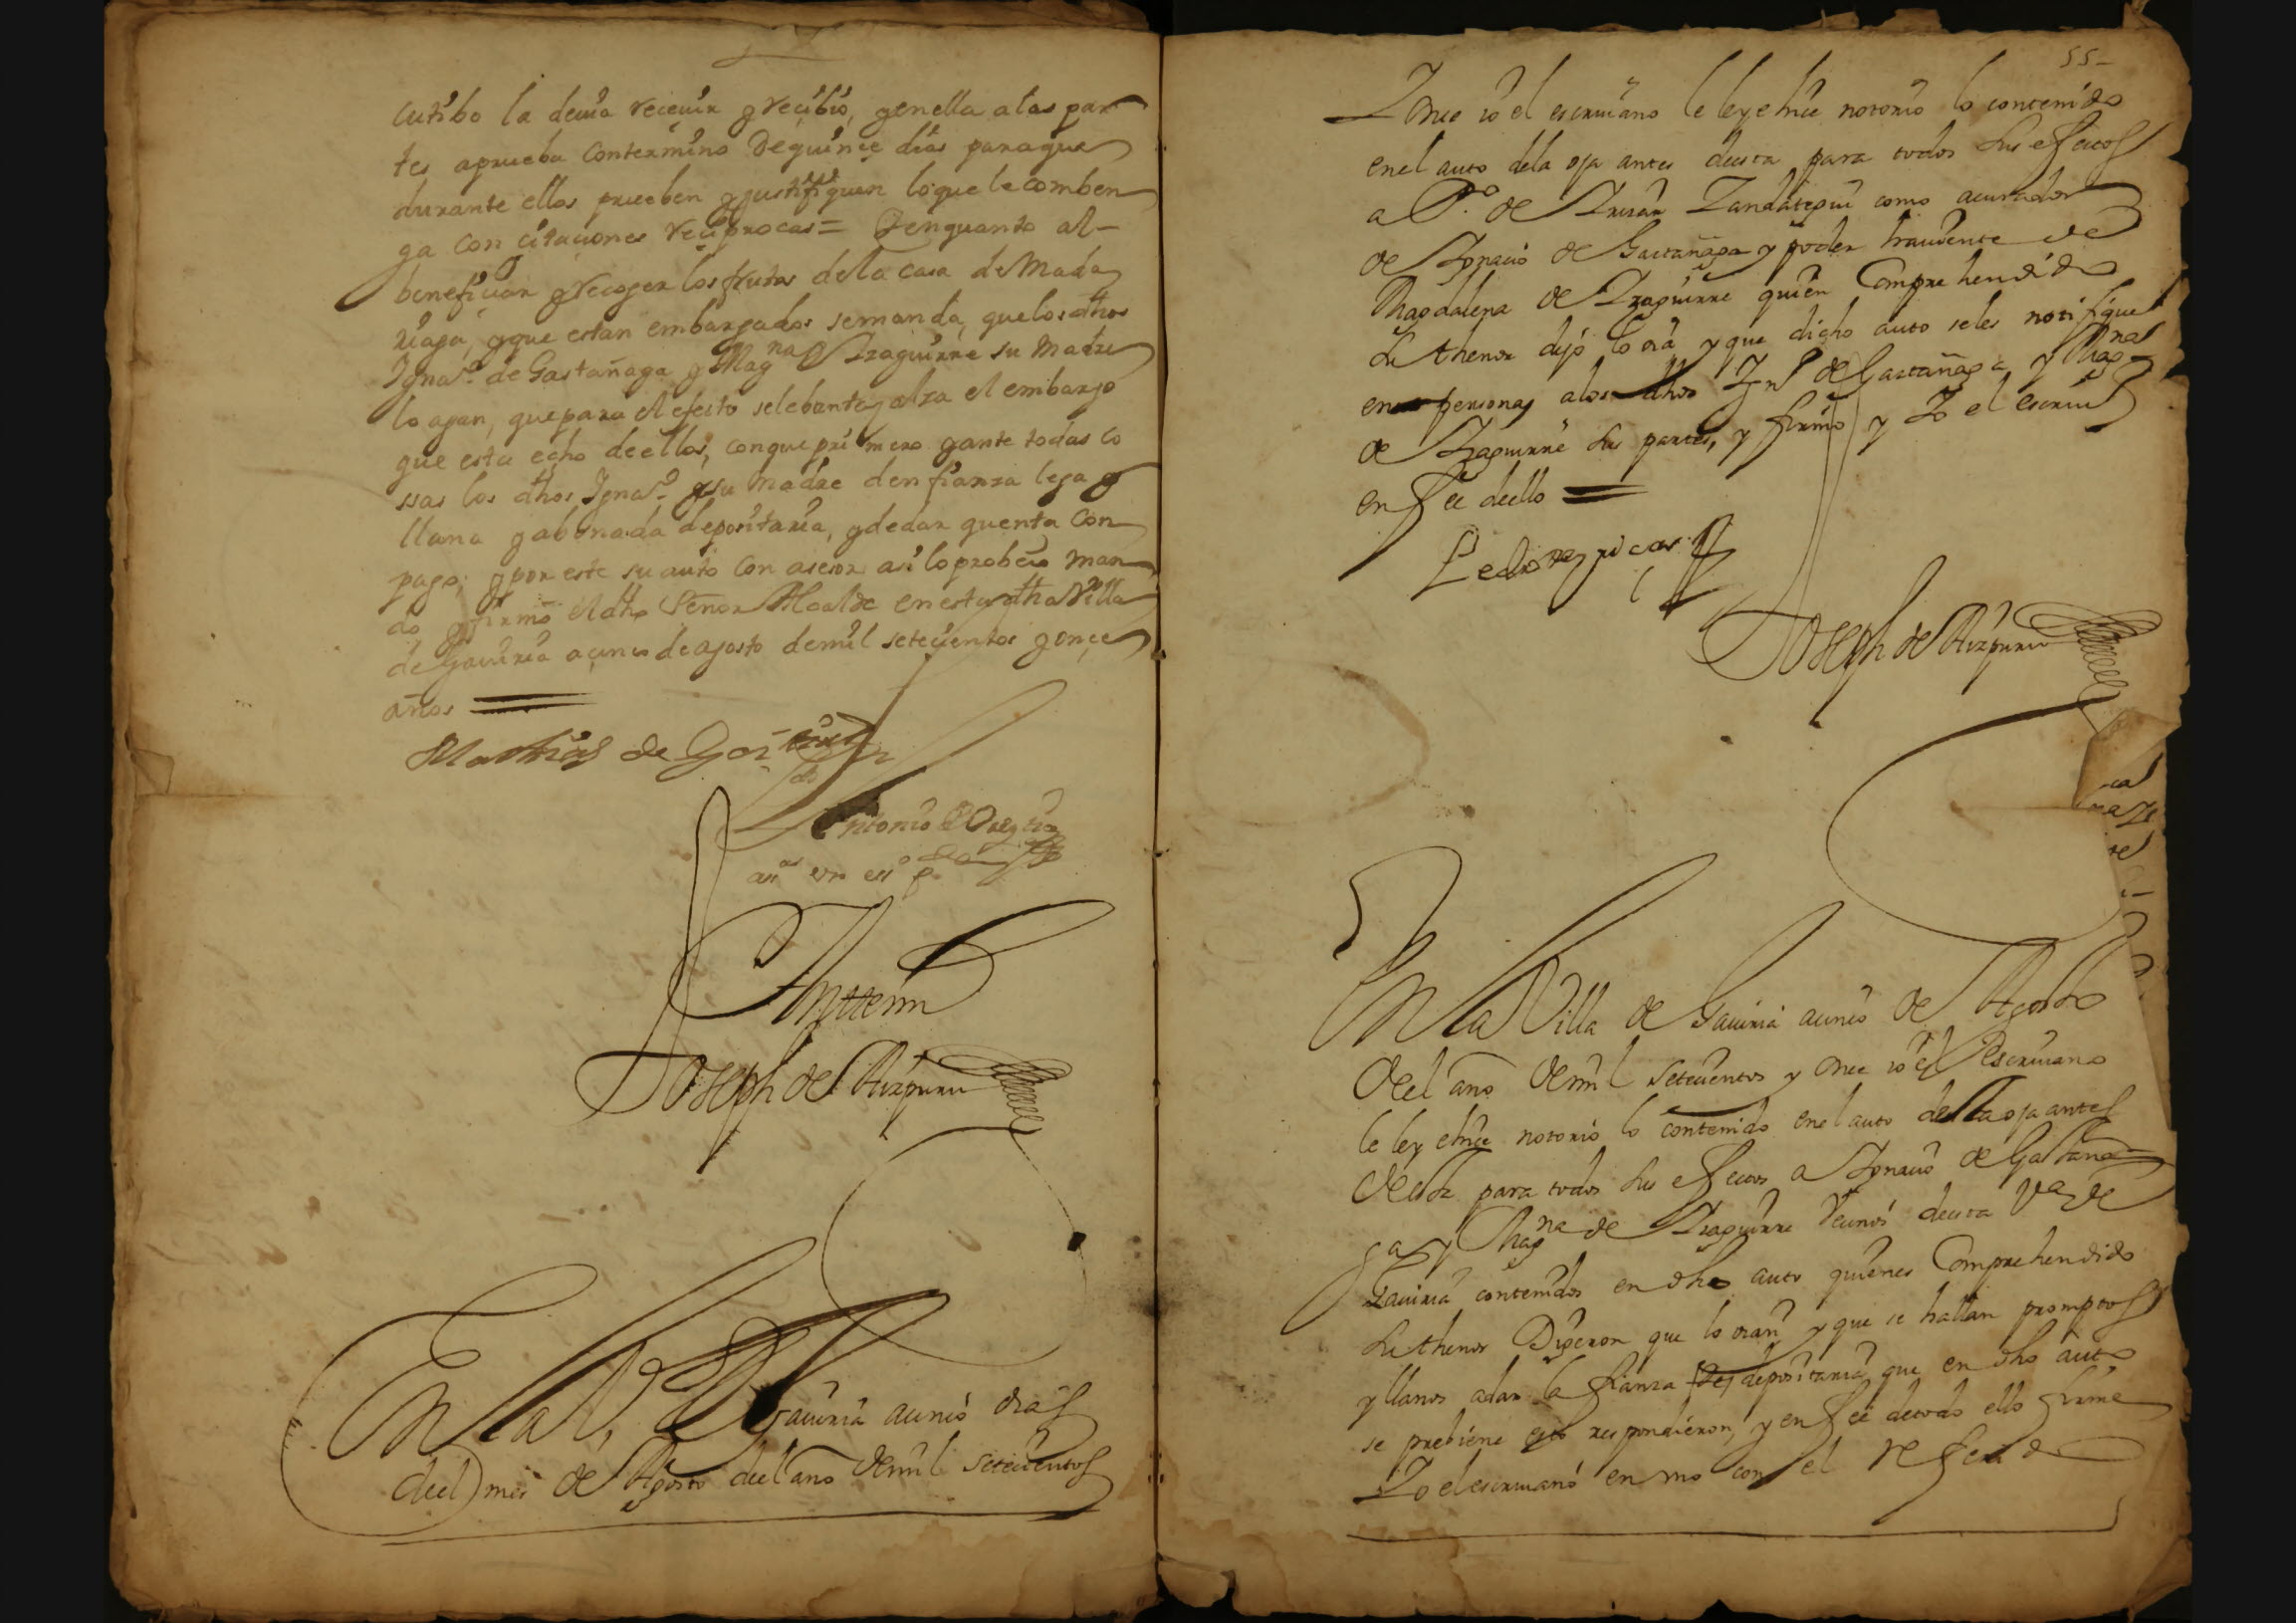 cutibo la deuia receuir y recibio, y en ella a las par
tes aprueba con termino de quince dias para que
durante ellos prueben y justifiquen lo que le comben
ga con citaciones reciprocas = Y en quanto al
beneficiar y recoger los frutos de la casa de Mada
riaga, y que estan embargados se manda, que los dhos
Igna.º de Gastañaga y Mag.na de Yzaguirre su Madre
lo agan, que para el efecto se lebanta y alza el embargo
que esta echo de ellos, con que primero y ante todas co
ssas los dhos Igna.º y su Madre den fianza lega
llana y abonada depositaria, y de dar quenta con
pago; y por este su auto con asesor asi lo probeio man
do y firmo el dho Señor Alcalde en esta dha Villa
de Gauiria a cinco de agosto de mil setecientos y once
años =
Mathias de
Antonio de
Antte mi
Joseph de Aizpuru
En la Vª de Gauiria a cinco dias
del mes de Agosto del año de mil setecientos
55
Y once io el escriuano le ley e hice notorio lo contenido
en el auto de la oja antes desta para todos sus efectos
a P.º de Yrizar Zandategui como acurador
de Ygnacio de Gastañaga y poder hauiente de
Magdalena de Yzaguirre quien Comprehendido
su thenor dijo lo oia y que dicho auto se les notifique
en personas a los dhos Ygn.º de Gastañaga y Mag.na
de Yzaguirre sus partes, y firmo y Yo el escriu.º
en fee dello =
Joseph de Aizpuru
En la Villa de Gauiria a cinco de Agosto
del año de mil setecientos y once io el Escriuano
le ley e hice notorio lo contenido en el auto de la oja antes
desta para todos sus efectos a Ygnacio de Gastaña
ga y Mag.na de Yzaguirre vecinos desta Vª de
Gauiria contenidos en dho auto quienes Comprehendido
su thenor Dijeron que lo oian y que se hallan promptos
y llanos a dar la fianza de depositaria que en dho auto
se prebiene esto respondieron, y en fee de todo ello firme
Yo el escriuano en uno con el